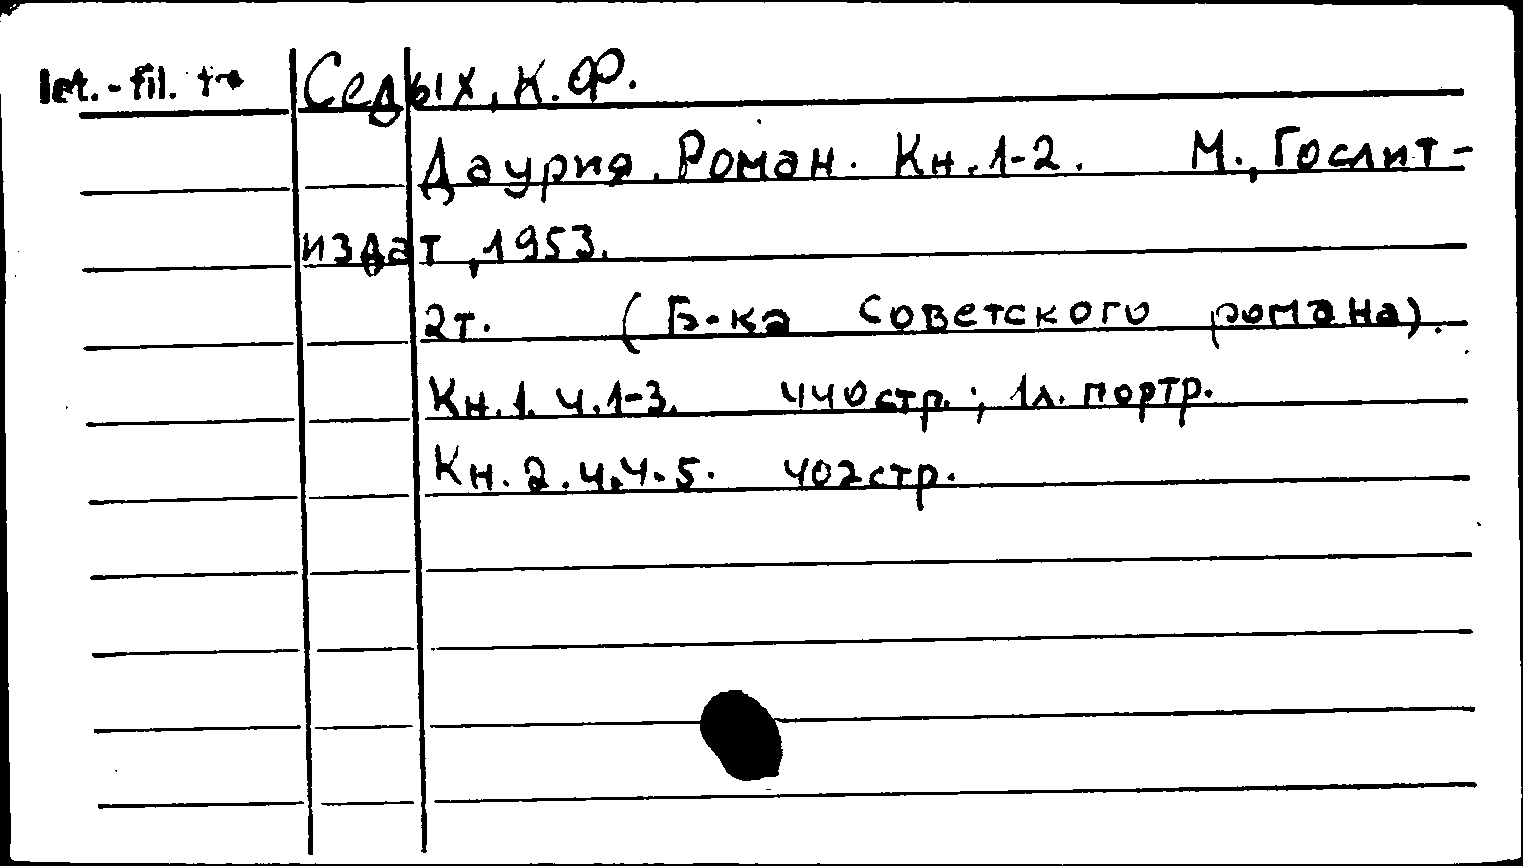 let.-fil.
Седых, К.Ф.
Даурия. Роман. Кн.1-2. М., Гослит-
издат, 1953.
2т. (Б-ка Советского романа).
Кн.1. ч.1-3. 440стр.; 1л. портр.
Кн.2. ч.4-5. 402стр.